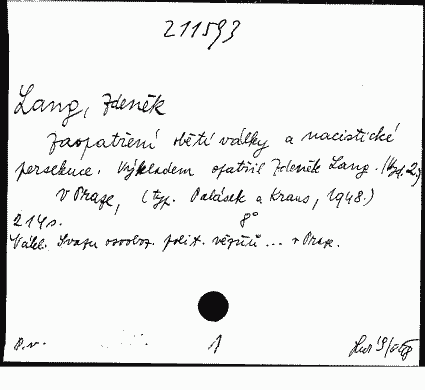 211593
Lang, Zdeněk
Zaopatření obětí války a nacistické
persekuce. Výkladem opatřil Zdeněk Lang. (Vyd. 2.)
V Praze, (typ. Palásek a Kraus, 1948.)
214 s. 8°
Nákl. Svazu osvoboz. polit. vězňů ... v Praze.
P.v. 1